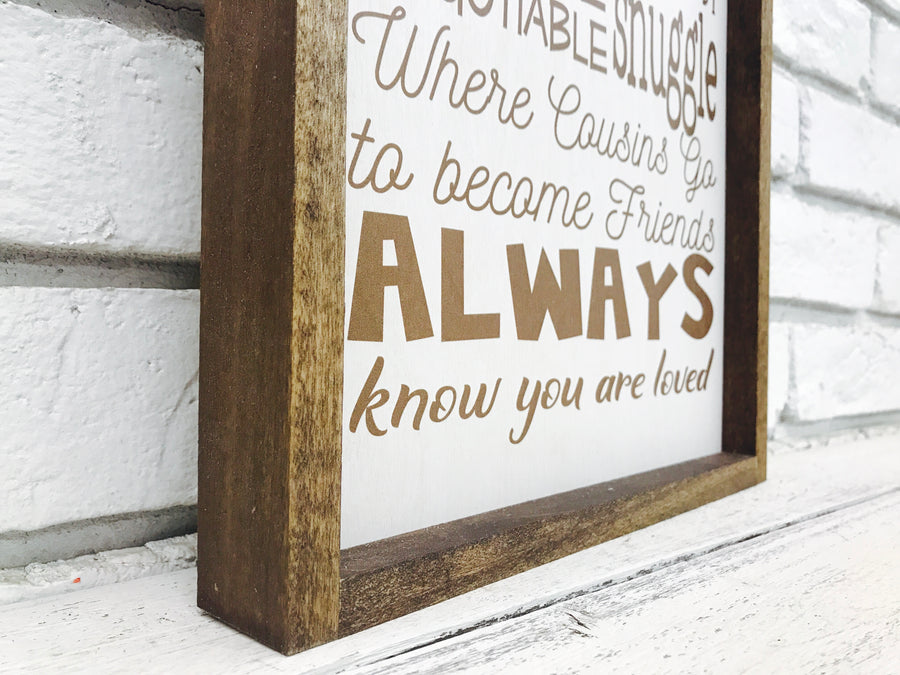 snuggle
Where Cousins Go
to become Friends
ALWAYS
know you are loved